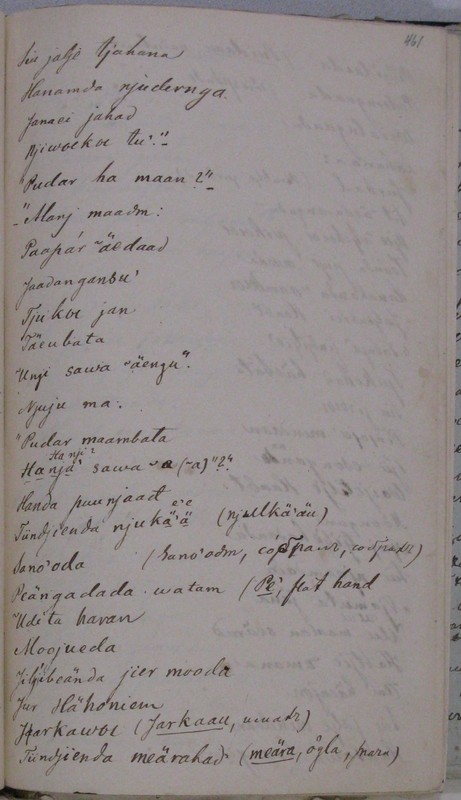 461
Siu jalje tjahana
Hanamda njudernga.
Janaei jahad
Njiwoekoe tu'."
"Pudar ha maan?"
"Manj maadm:
Paapár "äedaad
Jaadanganbu'
Tjukoe jan
Täeubata
"Ungi sawa "äengu".
Njuju ma:
"Pudar maambata
Hanji?
Hanja' sawa "a (-a)"?"
Handa puunjaad e'e
Tündjienda njukä'ä (njullkä'äu)
Sano'oda (Sano'odm,
Peängadada watam (Pe', flat hand
"Udita havan
Moojueda
Jiljibeända jier mooda
Jur Hähoniem
Jarkawoe (Jarkaau,
Tündjienda meärahad (meära, ögla,